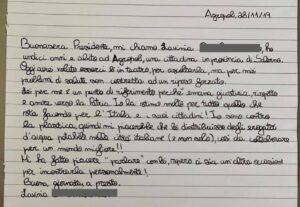 Agropoli, 28/11/19
Buonasera Presidente, mi chiamo Lavinia, ho
undici anni e abito ad Agropoli, una cittadina in provincia di Salerno.
Oggi avrei voluto esserci lì in teatro, per ascoltarla, ma per miei
problemi di salute sono costretta ad un riposo forzato.
Lei per me è un punto di riferimento perché emana giustizia, rispetto
e amore verso la Patria. Io la stimo molto per tutto quello che
sta facendo per l'Italia e i suoi cittadini! Io sono contro
la plastica, quindi mi piacerebbe che si distribuissero degli erogatori
d'acqua potabile nelle città italiane (e non solo), così da collaborare
per un mondo migliore!!
Mi ha fatto piacere "parlare" con lei, spero ci sia un'altra occasione
per incontrarla personalmente!
Buona giornata, a presto.
Lavinia